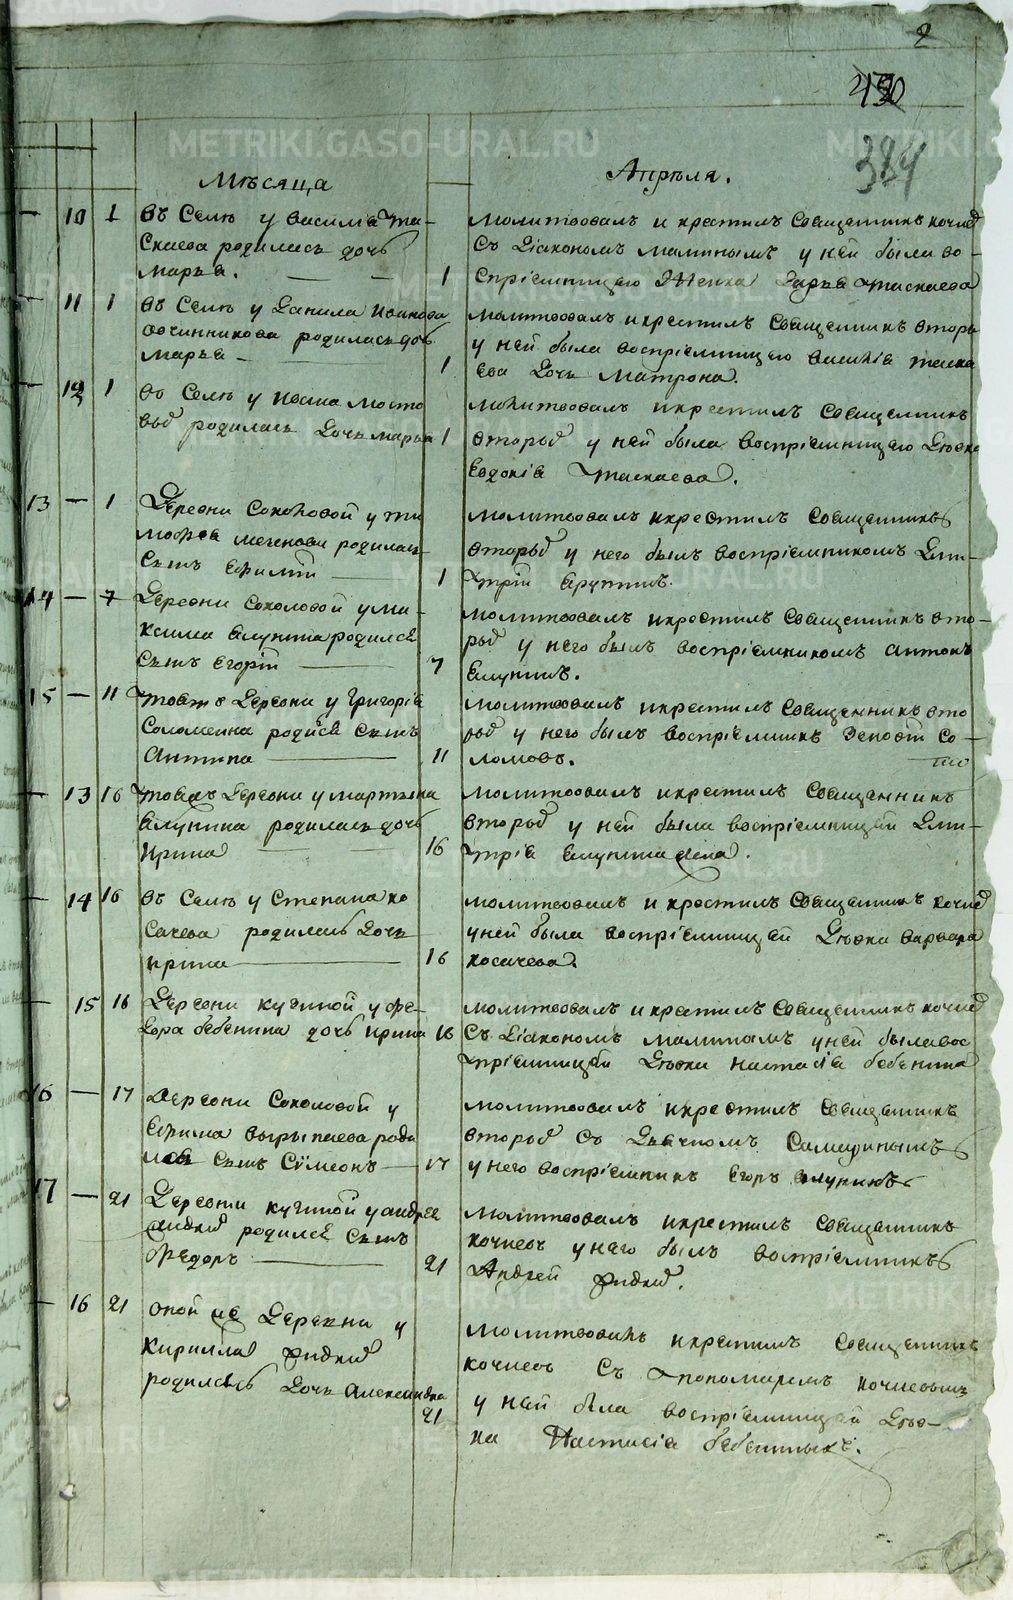 2
384
Мѣсяца Апрѣля.
10 1 въ Селѣ у василья та-
скаева родилась дочь
марья. 1
молитвовалъ и крестилъ Священникъ кочнев
Съ Діакономъ малинымъ у ней была во-
спріемницею Дарья таскаева
11 1 въ Селѣ у Данила иванова
овчинникова родилась дочь
марья 1
молитвовалъ и крестилъ Священникъ вторы
у ней была воспріемницею таска
ева Дочь Матрона.
12 1 въ Селѣ у ивана мосто
вых родилась Дочь марья 1
молитвовалъ и крестилъ Священникъ
вторыя у ней была воспріемницею Дѣвка
Евдокія таскаева.
13 1 Деревни Соколовой у ти
мофея родился
Сынъ Ефимій 1
молитвовалъ и крестилъ Священникъ
вторыя у него былъ воспріемникомъ Дми-
трій елунинъ.
14 7 Деревни Соколовой у ма-
ксима елунина родился
Сынъ Егорій 7
молитвовалъ и крестилъ Священникъ вто-
рыя у него былъ воспріемникомъ антонъ
елунинъ.
15 11 тояже Деревни у Григорія
Соломеина родился Сынъ
Антипа 11
молитвовалъ и крестилъ Священникъ вто
рыя у него былъ воспріемникъ Со-
ломовъ.
13 16 Деревни у мартьяна
елунина родилась дочь
Ирина 16
молитвовалъ и крестилъ Священникъ
вторыя у ней была воспріемницей Дми-
трія елунина
14 16 въ Селѣ у Степана ко
сачева родилась Дочь
ирина 16
молитвовалъ и крестилъ Священникъ кочнев
у ней была воспріемницей Дѣвка варвара
косачева.
15 16 Деревни кугиной у фе-
дора бебенина дочь ирина 16
молитвовалъ и крестилъ Священникъ кочнев
Съ Діакономъ малинымъ у ней была вос
пріемницей Дѣвка настасія бебенина
16 17 Деревни Соколовой у
Ефима вырыпаева роди
лся Сынъ Сѵмеонъ 17
молитвовалъ и крестилъ Священникъ
вторыя Съ Дьячкомъ
у него воспріемникъ Егоръ елунинъ
17 21 Деревни кугиной у андрея
родился Сынъ
Федоръ 21
молитвовалъ и крестилъ Священникъ
кочневъ у него былъ воспріемникъ
Андрей
16 21 оной же Деревни у
Кирилла
родилась Дочь Александра 21
молитвовалъ и крестилъ Священникъ
кочневъ Съ пономаремъ кочневымъ
у ней была воспріемницей Дѣв-
ка Настасія бебениныхъ.
METRIKI.GASO-URAL.RU